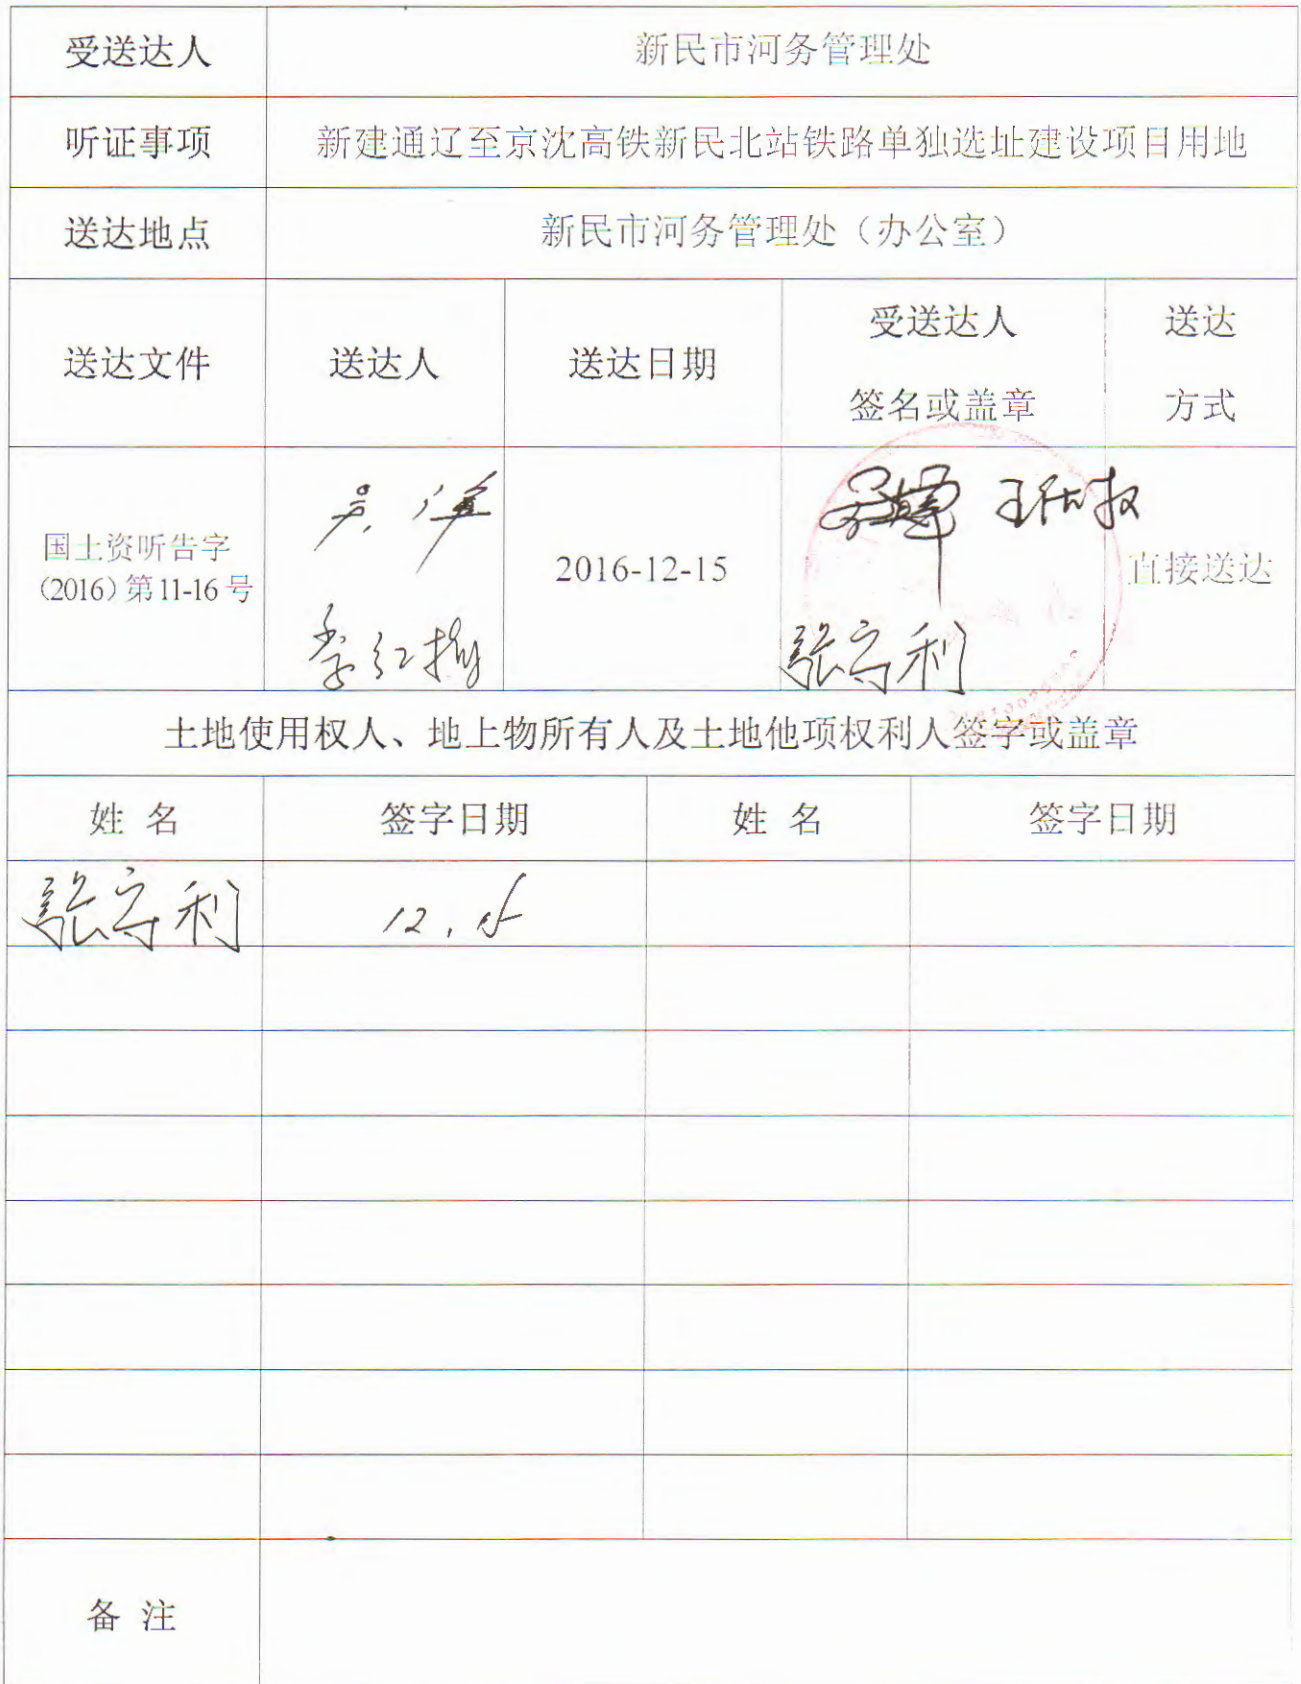 受送达人 新民市河务管理处
听证事项 新建通辽至京沈高铁新民北站铁路单独选址建设项目用地
送达地点 新民市河务管理处（办公室）
送达文件 送达人 送达日期 受送达人 签名或盖章 送达 方式
国土资听告字
(2016)第11-16号
李红梅
2016-12-15
张守利
直接送达
土地使用权人、地上物所有人及土地他项权利人签字或盖章
姓 名 签字日期 姓 名 签字日期
张守利 12.15
备 注